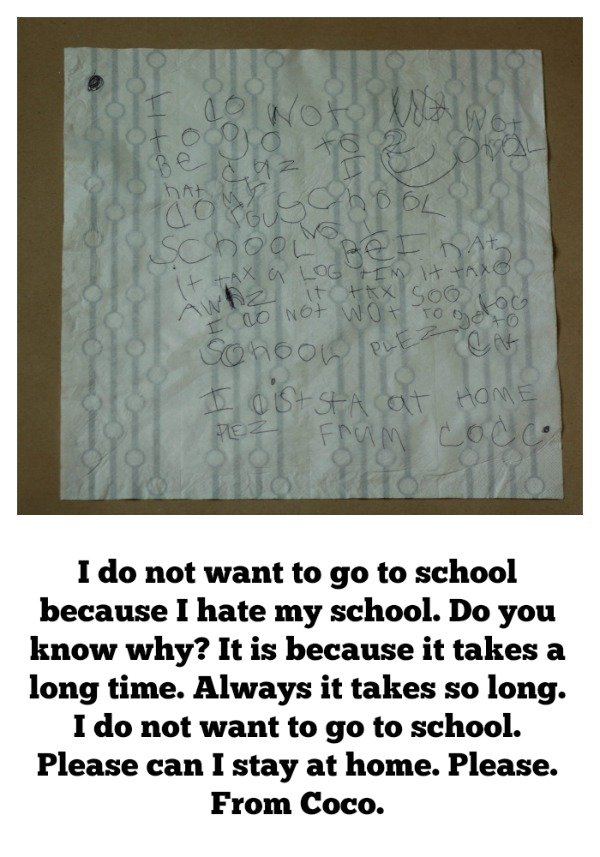 I do Not WOt
to go to SChOOL
Be cuz I
hAt my
SChOOL
do you
NO
SChOOL BeI hAt
It tAx a LOG tIM It tAXO
AWAZ It tAX SOO LOG
I do NOt WOt to go to
SchooL PLEZ CAN
I JIST STA at HOME
PLEZ FRUM COCO
I do not want to go to school
because I hate my school. Do you
know why? It is because it takes a
long time. Always it takes so long.
I do not want to go to school.
Please can I stay at home. Please.
From Coco.